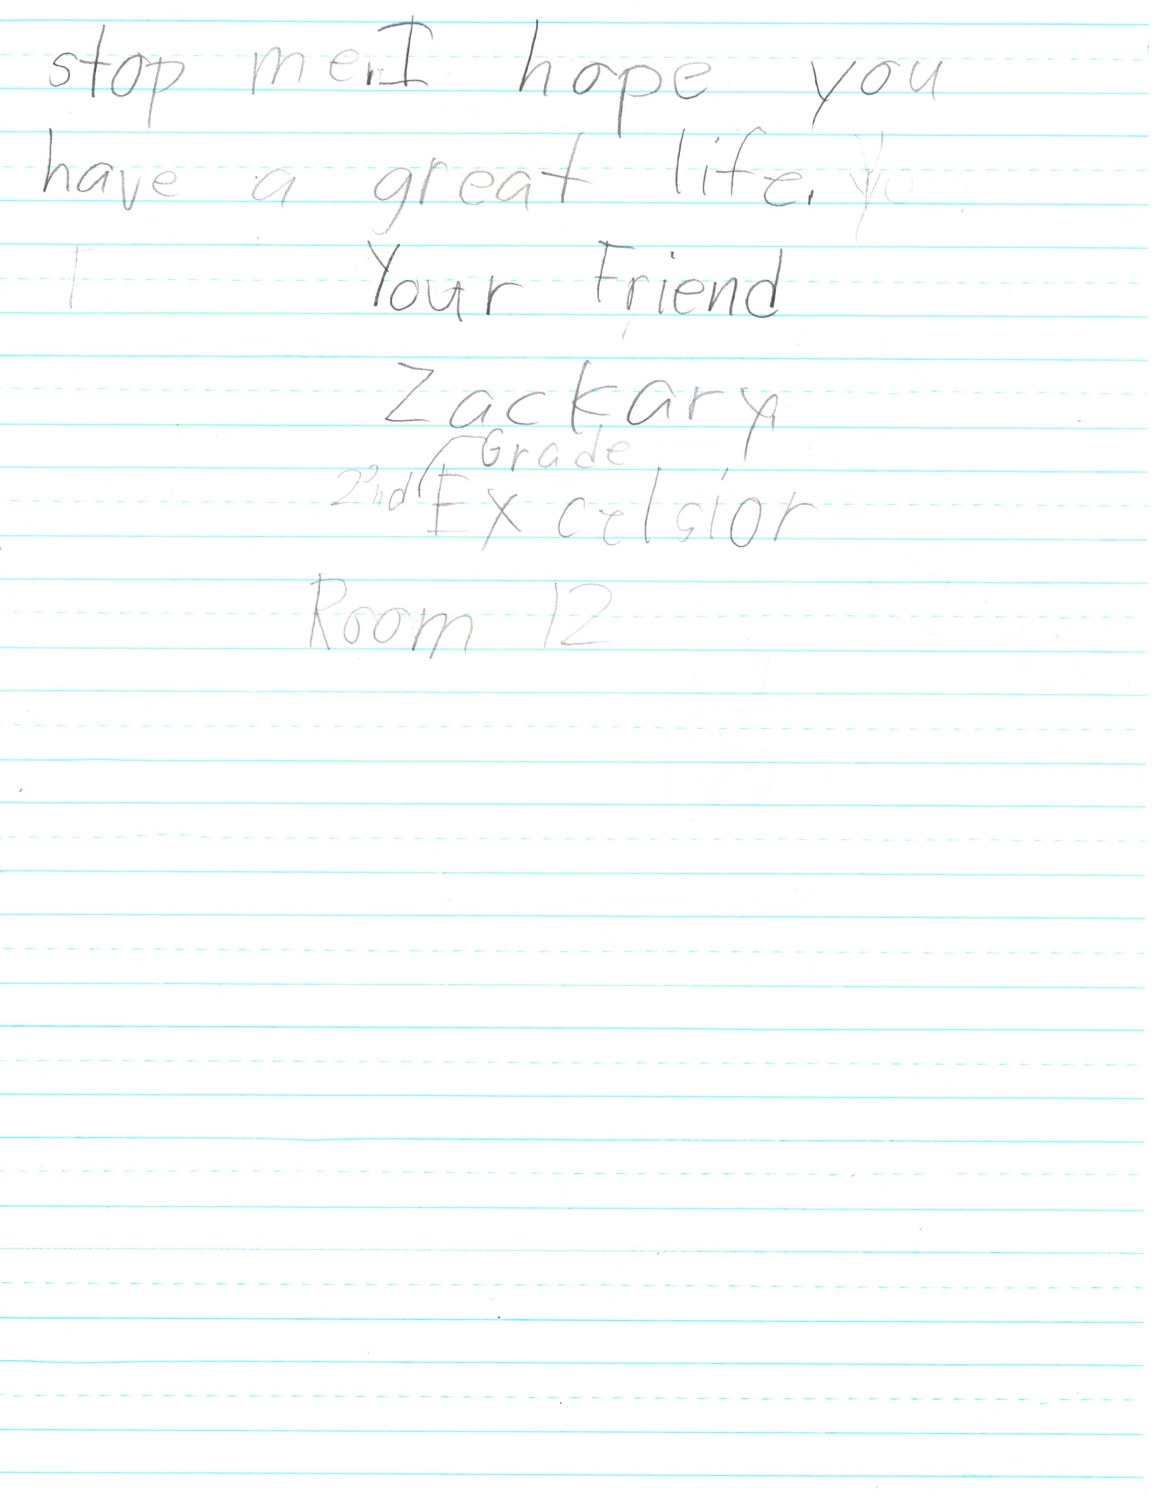 stop me. I hope you
have a great life.
Your Friend
Zackary
Grade
2nd Excelsior
Room 12